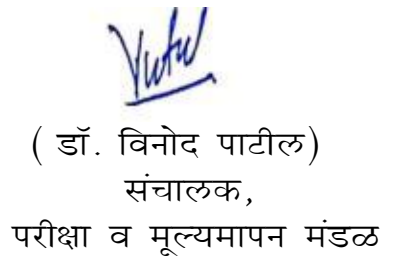 ( डॉ. विनोद पाटील)
संचालक,
परीक्षा व मूल्यमापन मंडळ